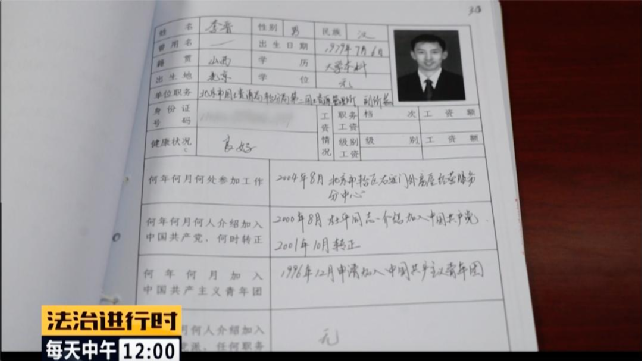 姓名 李睿 性别 男 民族 汉
曾用名 一 出生日期 1979年7月6日
籍贯 山西 学历 大学本科
出生地 北京 学位 无
单位职务 北京市
身份证号码 工资情况 职务工资 档次 工资额
级别工资 级别 工资额
健康状况 良好
何年何月何处参加工作 2004年8月
何年何月何人介绍加入中国共产党，何时转正 2000年8月 同志介绍加入中国共产党
2001年10月转正
何年何月加入中国共产主义青年团 1996年12月申请加入中国共产主义青年团
何年何月何人介绍加入 无
党派，任何职务
法治进行时
每天中午 12:00